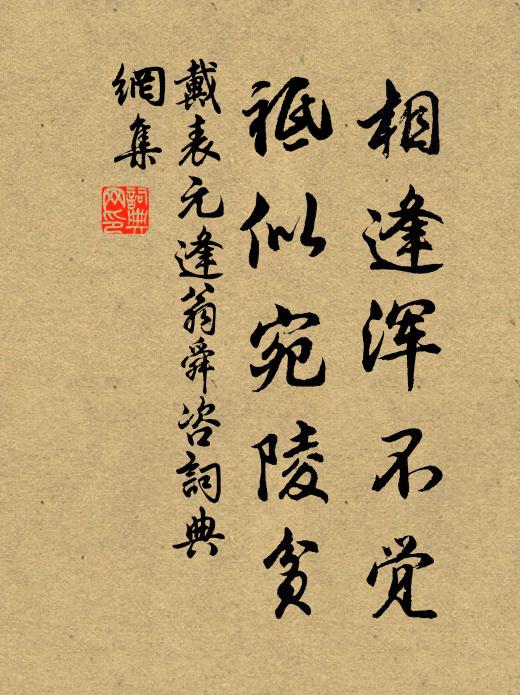 相逢浑不觉
祗似宛陵贫
戴表元逢翁舜咨詞典
網集
詞典
网印